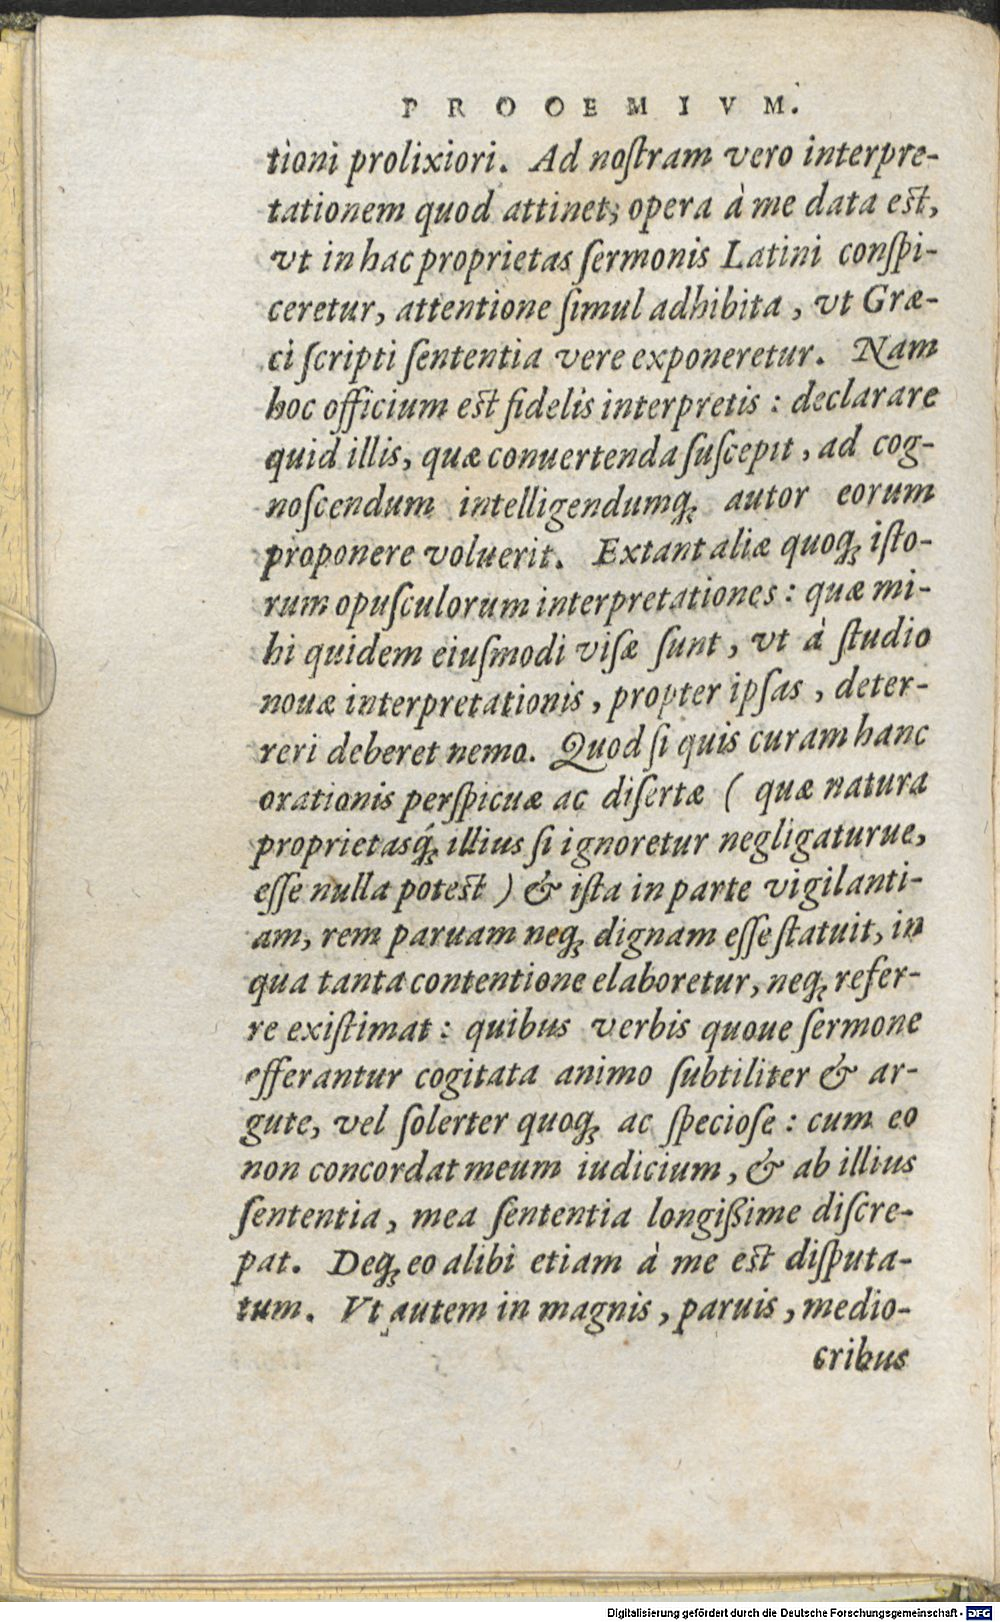 PROOEMIVM.
tioni prolixiori. Ad noſtram vero interpre-
tationem quod attinet; opera à me data eſt,
vt in hac proprietas ſermonis Latini conſpi-
ceretur, attentione ſimul adhibita, vt Græ-
ci ſcripti ſententia vere exponeretur. Nam
hoc officium eſt fidelis interpretis: declarare
quid illis, quæ conuertenda ſuſcepit, ad cog-
noſcendum intelligendumq; autor eorum
proponere voluerit. Extant aliæ quoq; iſto-
rum opuſculorum interpretationes: quæ mi-
hi quidem eiuſmodi viſæ ſunt, vt à ſtudio
nouæ interpretationis, propter ipſas, deter-
reri deberet nemo. Quod ſi quis curam hanc
orationis perſpicuæ ac diſertæ (quæ natura
proprietasq́; illius ſi ignoretur negligaturue,
eſſe nulla poteſt) & iſta in parte vigilanti-
am, rem paruam neq; dignam eſſe ſtatuit, in
qua tanta contentione elaboretur, neq; refer-
re exiſtimat: quibus verbis quoue ſermone
efferantur cogitata animo ſubtiliter & ar-
gute, vel ſolerter quoq; ac ſpecioſe: cum eo
non concordat meum iudicium, & ab illius
ſententia, mea ſententia longiſsime diſcre-
pat. Deq; eo alibi etiam à me eſt diſputa-
tum. Vt autem in magnis, paruis, medio-
cribus
Digitalisierung gefördert durch die Deutsche Forschungsgemeinschaft - DFG